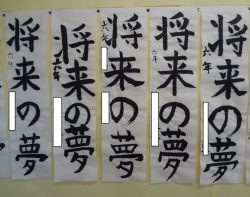 将来の夢
六年
将来の夢
六年
将来の夢
六年
将来の夢
六年
将来の夢
六年